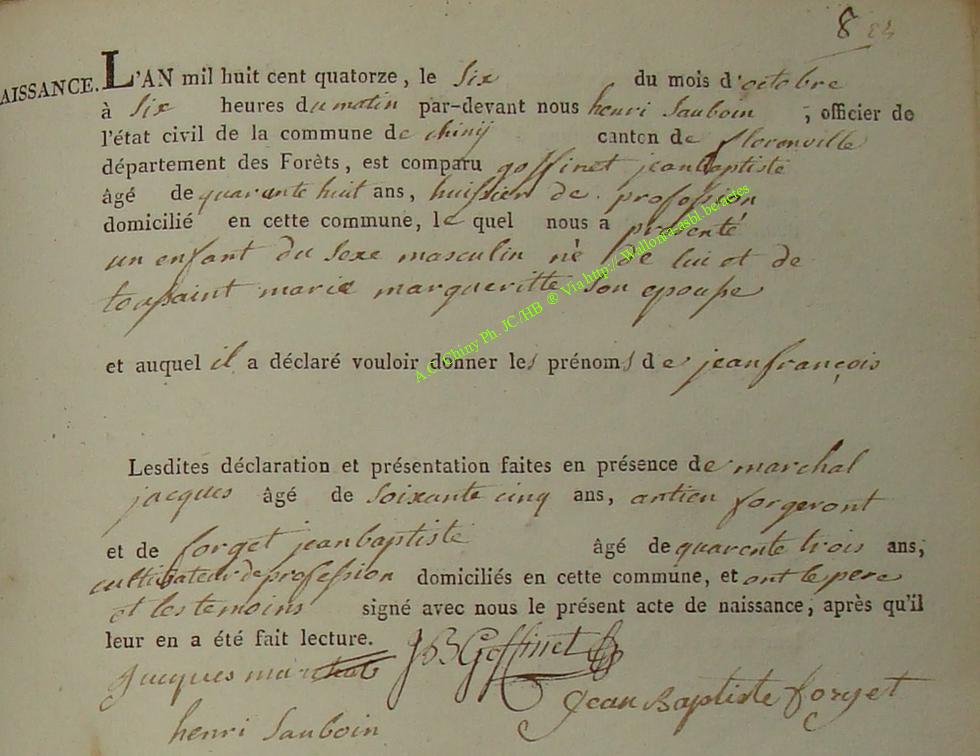 8
NAISSANCE. L'AN mil huit cent quatorze, le Six du mois d'octobre
à Six heures du matin par-devant nous henri Sauboin, officier de
l'état civil de la commune de chinÿ canton de florenville
département des Forêts, est comparu goffinet jeanbaptiste
âgé de quarante huit ans, huissier de profession
domicilié en cette commune, le quel nous a présenté
un enfant du Sexe masculin nè de lui et de
toussaint marie margueritte Son epousse
et auquel il a déclaré vouloir donner les prénoms de jeanfrançois
Lesdites déclaration et présentation faites en présence de marchal
jacques âgé de Soixante cinq ans, antien forgeront
et de forget jeanbaptiste âgé de quarente trois ans,
cultivateur de profession domiciliés en cette commune, et ont le pere
et les temoins signé avec nous le présent acte de naissance, après qu'il
leur en a été fait lecture. JB Goffinet
Jacques marchal
Jean Baptiste forget
henri Sauboin
A.C. Chiny Ph. JC/HB ® Via http://Wallonia-asbl.be-actes